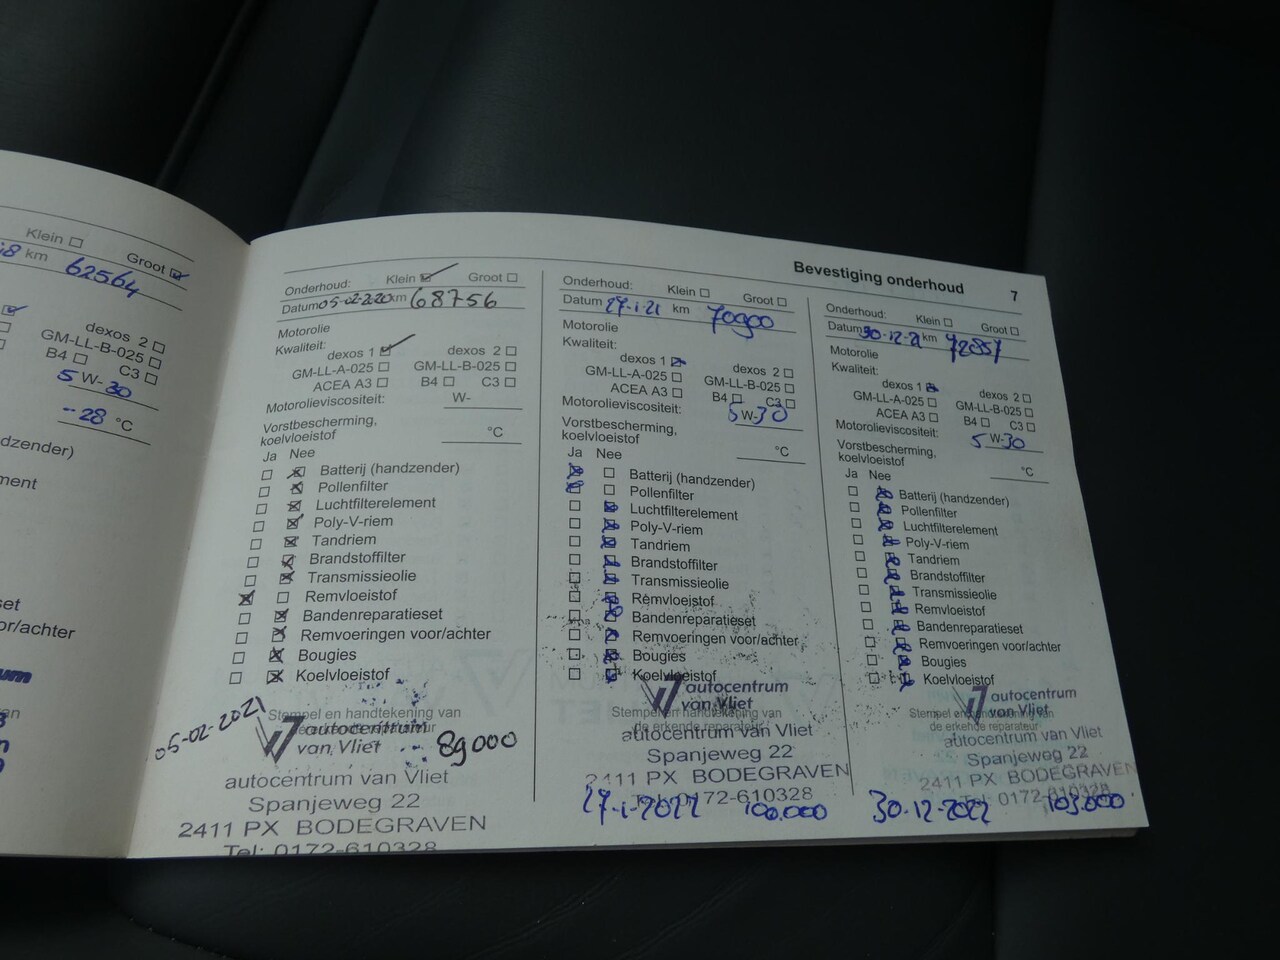 Klein Groot
km 62564
dexos 2
GM-LL-B-025
B4 C3
5 W-30
-28 °C
Bevestiging onderhoud 7
Onderhoud: Klein Groot
Datum 05-02-2020 km 68756
Motorolie
Kwaliteit:
dexos 1 dexos 2
GM-LL-A-025 GM-LL-B-025
ACEA A3 B4 C3
Motorolieviscositeit: W-
Vorstbescherming,
koelvloeistof °C
Ja Nee
Batterij (handzender)
Pollenfilter
Luchtfilterelement
Poly-V-riem
Tandriem
Brandstoffilter
Transmissieolie
Remvloeistof
Bandenreparatieset
Remvoeringen voor/achter
Bougies
Koelvloeistof
Stempel en handtekening van
05-02-2021
autocentrum
van Vliet
89000
autocentrum van Vliet
Spanjeweg 22
2411 PX BODEGRAVEN
Tel: 0172-610328
Onderhoud: Klein Groot
Datum 27-1-21 km 70900
Motorolie
Kwaliteit:
dexos 1 dexos 2
GM-LL-A-025 GM-LL-B-025
ACEA A3 B4 C3
Motorolieviscositeit: 5 W-30
Vorstbescherming,
koelvloeistof °C
Ja Nee
Batterij (handzender)
Pollenfilter
Luchtfilterelement
Poly-V-riem
Tandriem
Brandstoffilter
Transmissieolie
Remvloeistof
Bandenreparatieset
Remvoeringen voor/achter
Bougies
Koelvloeistof
autocentrum
van Vliet
Stempel en handtekening van
de erkende reparateur
autocentrum van Vliet
Spanjeweg 22
2411 PX BODEGRAVEN
Tel: 0172-610328
27-1-2022 100.000
Onderhoud: Klein Groot
Datum 30-12-21 km 72857
Motorolie
Kwaliteit:
dexos 1 dexos 2
GM-LL-A-025 GM-LL-B-025
ACEA A3 B4 C3
Motorolieviscositeit: 5 W-30
Vorstbescherming,
koelvloeistof °C
Ja Nee
Batterij (handzender)
Pollenfilter
Luchtfilterelement
Poly-V-riem
Tandriem
Brandstoffilter
Transmissieolie
Remvloeistof
Bandenreparatieset
Remvoeringen voor/achter
Bougies
Koelvloeistof
autocentrum
van Vliet
Stempel en handtekening van
de erkende reparateur
autocentrum van Vliet
Spanjeweg 22
2411 PX BODEGRAVEN
Tel: 0172-610328
30-12-2022 103.000